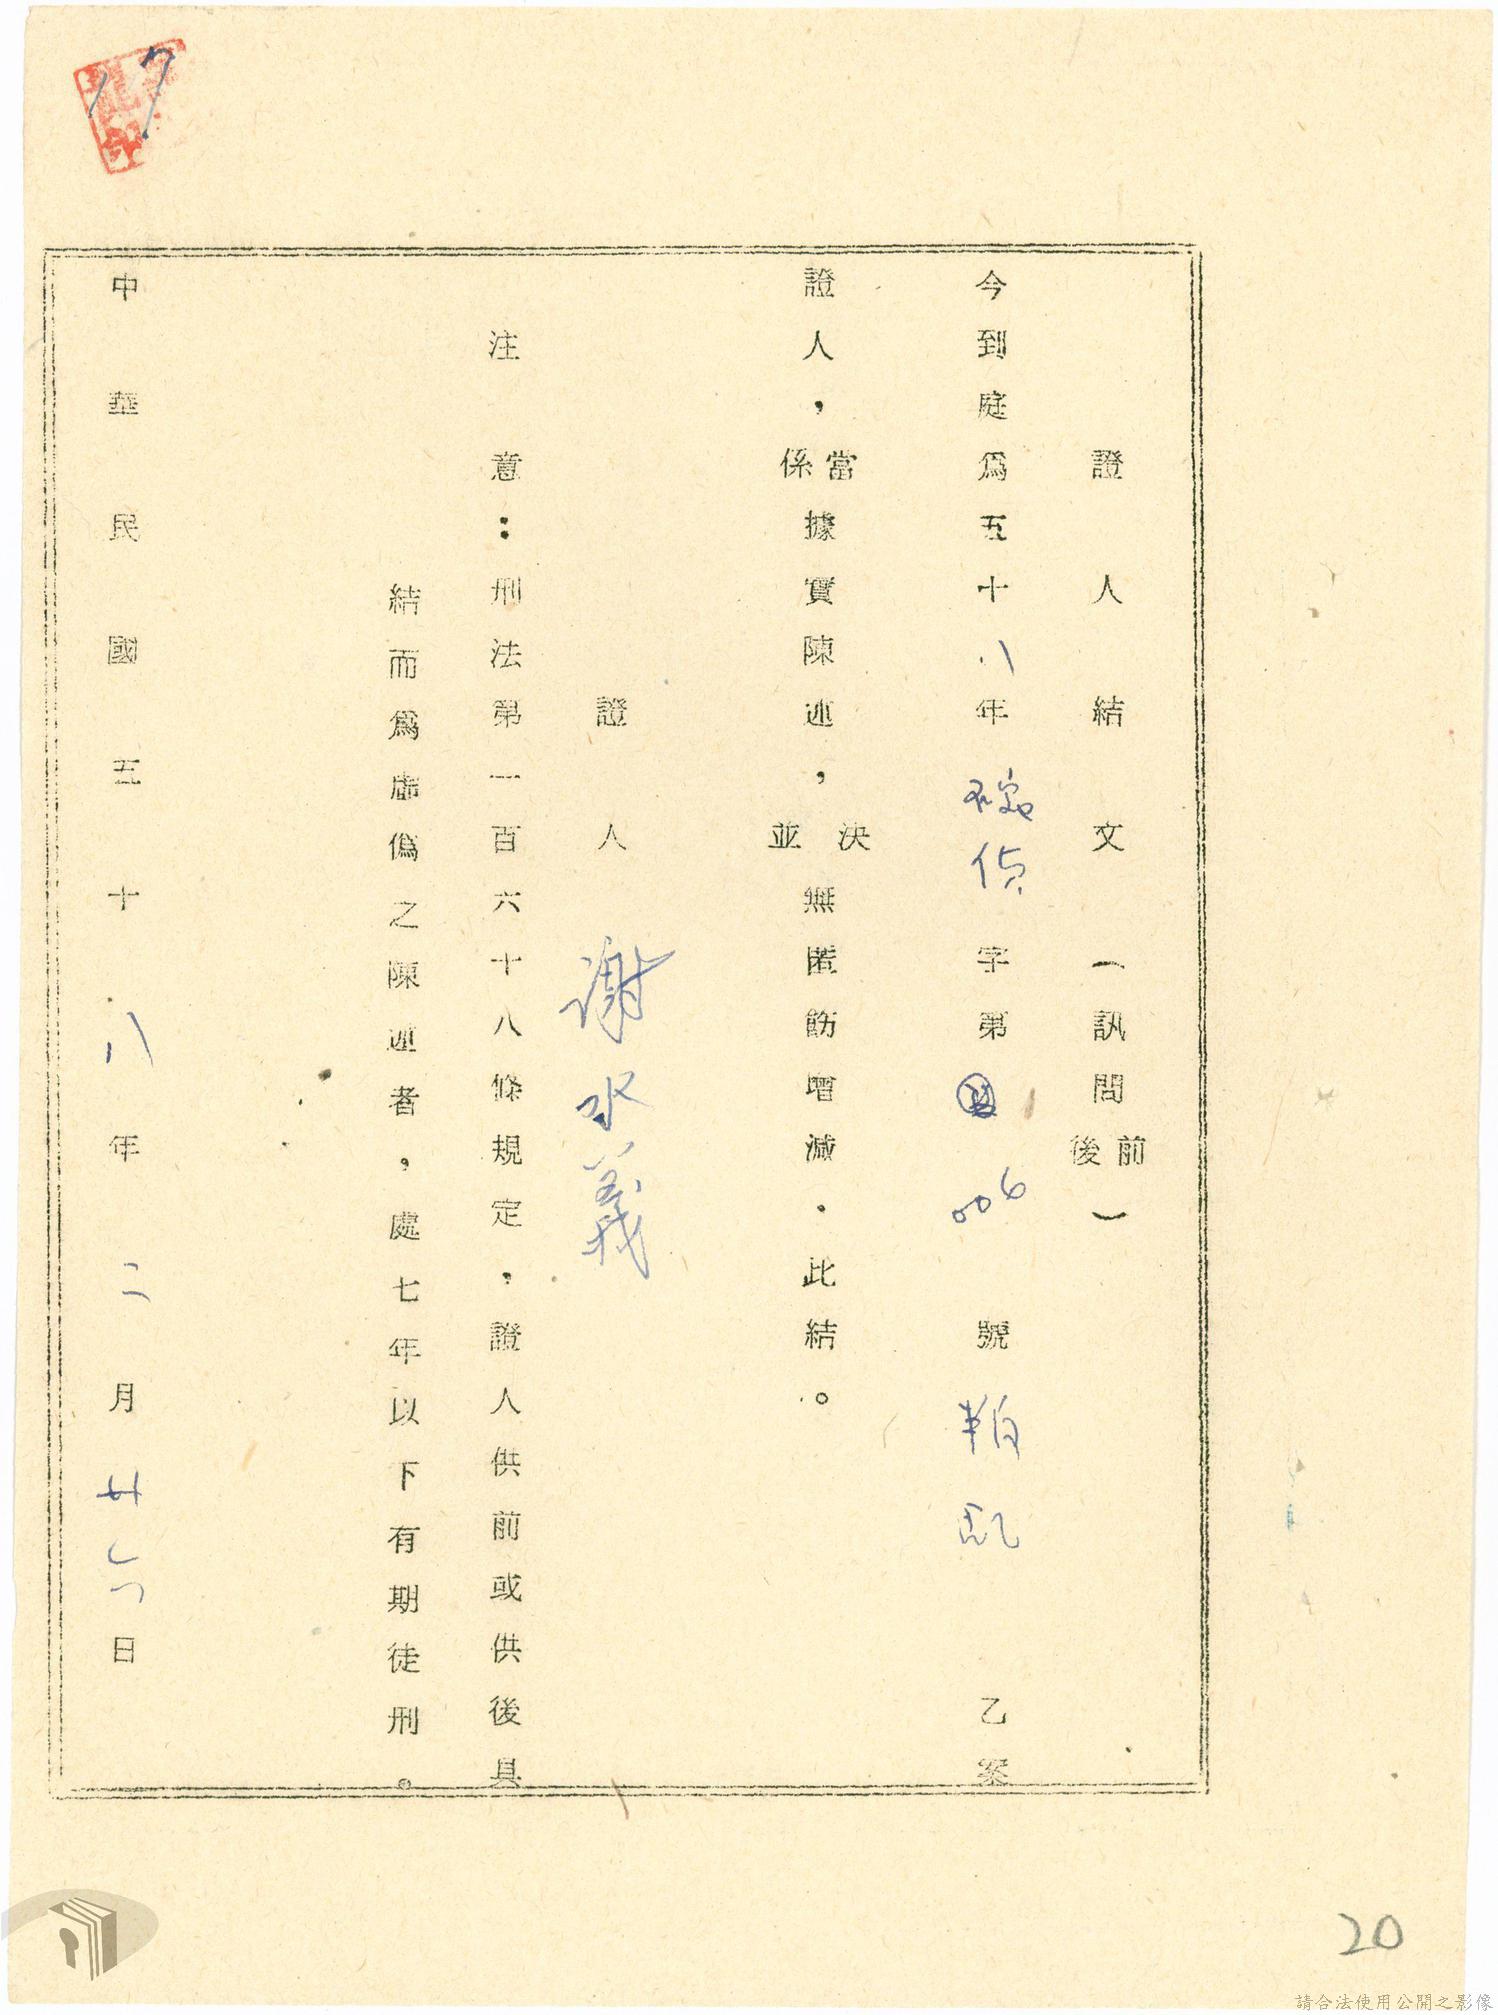 證人結文（訊問前後）
今到庭爲五十八年偵字第006號叛乱乙案
證人，當係據實陳述，決並無匿飾增減．此結。
證人 謝水義
注意：刑法第一百六十八條規定，證人供前或供後具
結而爲虛僞之陳述者，處七年以下有期徒刑。
中華民國五十八年二月廿六日
17
20
請合法使用公開之影像